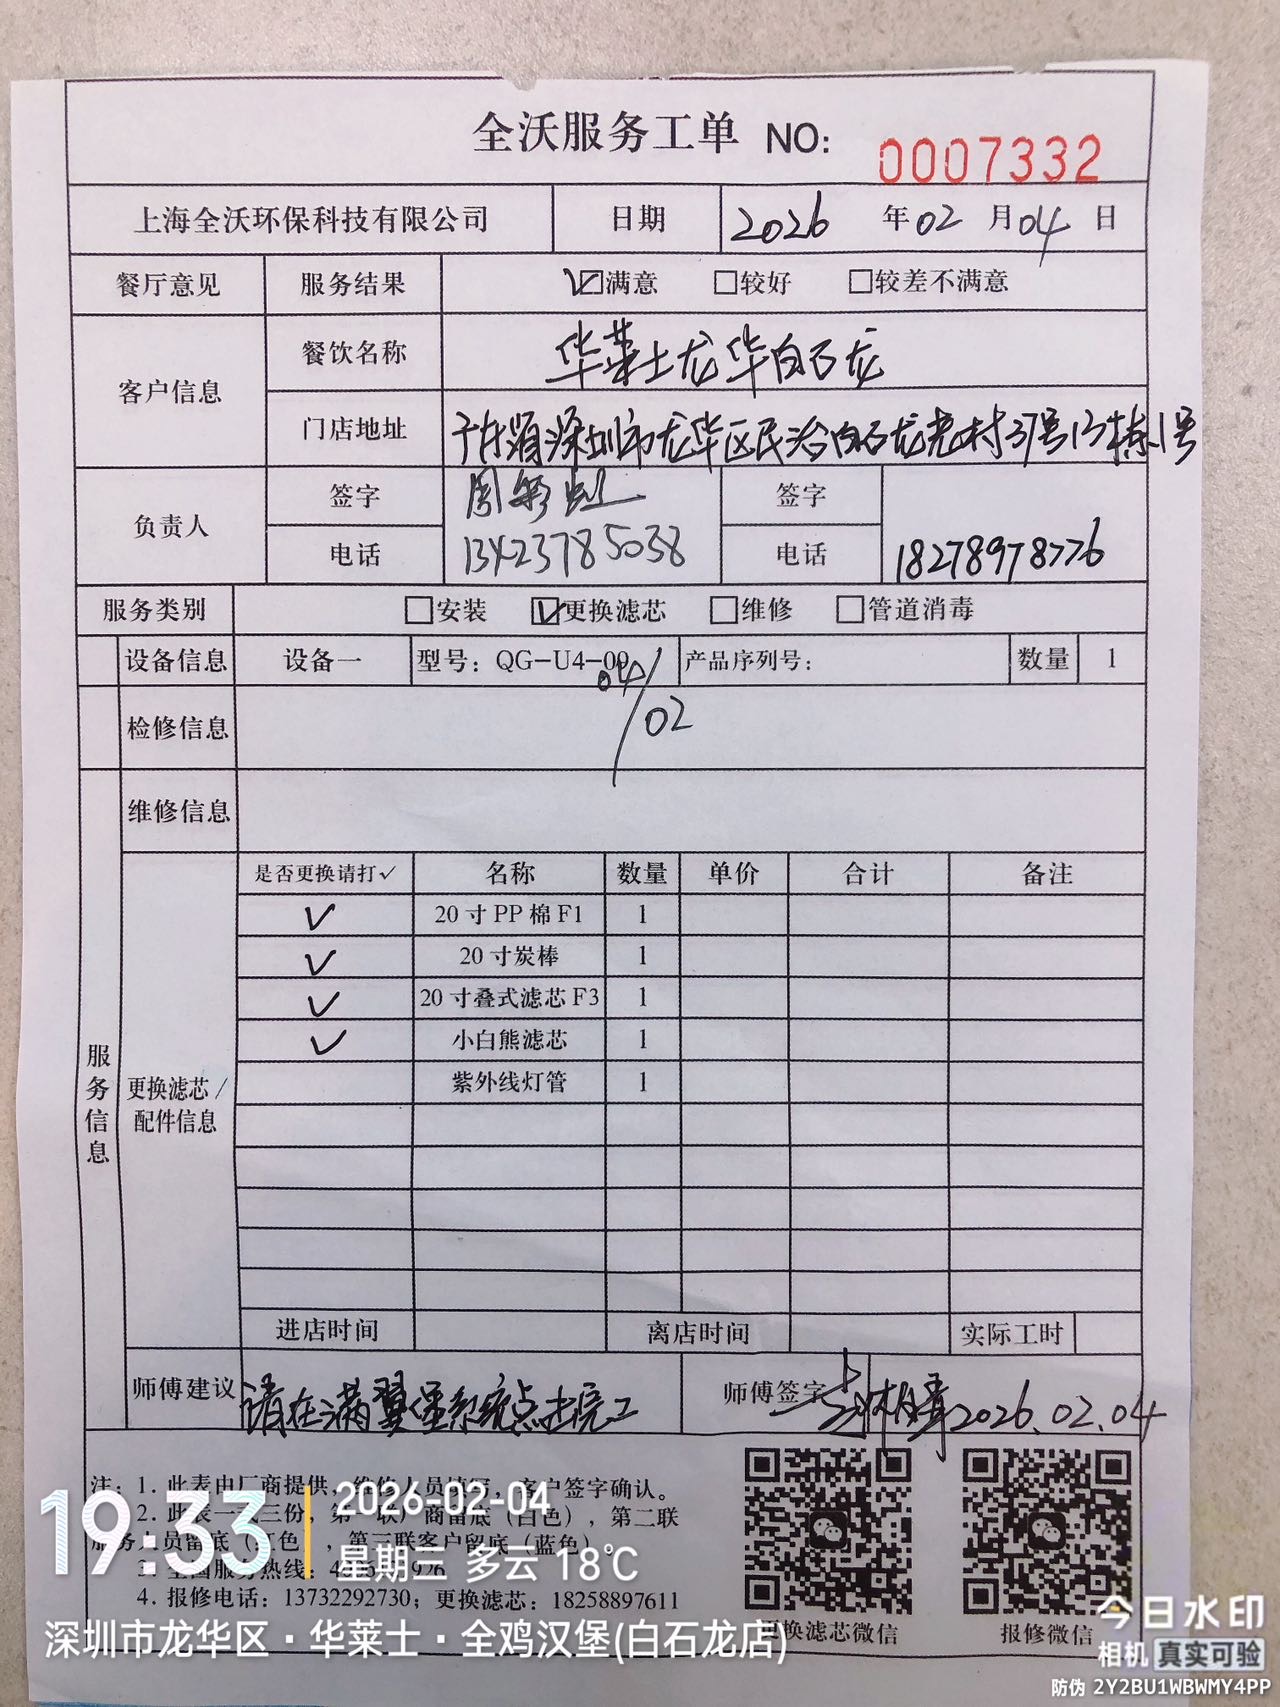 全沃服务工单 NO: 0007332
上海全沃环保科技有限公司 日期 2026 年 02 月 04 日
餐厅意见 服务结果 ☑满意 □较好 □较差不满意
客户信息 餐饮名称 华莱士龙华白石龙
门店地址 广东省深圳市龙华区民治白石龙老村37号13栋1号
负责人 签字 周彩虹 签字
电话 13423785038 电话 18278978776
服务类别 □安装 ☑更换滤芯 □维修 □管道消毒
设备信息 设备一 型号：QG-U4-00 产品序列号： 数量 1
04/02
检修信息
维修信息
服务信息
更换滤芯/配件信息
是否更换请打✓ 名称 数量 单价 合计 备注
✓ 20寸PP棉F1 1
✓ 20寸炭棒 1
✓ 20寸叠式滤芯F3 1
✓ 小白熊滤芯 1
紫外线灯管 1
进店时间 离店时间 实际工时
师傅建议 请在满翼堡系统点击完工 师傅签字 2026.02.04
注：1. 此表由厂商提供，维修人员填写，客户签字确认。
2. 此表一式三份，第一联厂商留底（白色），第二联
服务人员留底（红色），第三联客户留底（蓝色）。
3. 全国服务热线：
4. 报修电话：13732292730；更换滤芯：18258897611
更换滤芯微信 报修微信
19:33 2026-02-04
星期三 多云 18℃
深圳市龙华区·华莱士·全鸡汉堡(白石龙店)
今日水印
相机 真实可验
防伪 2Y2BU1WBWMY4PP